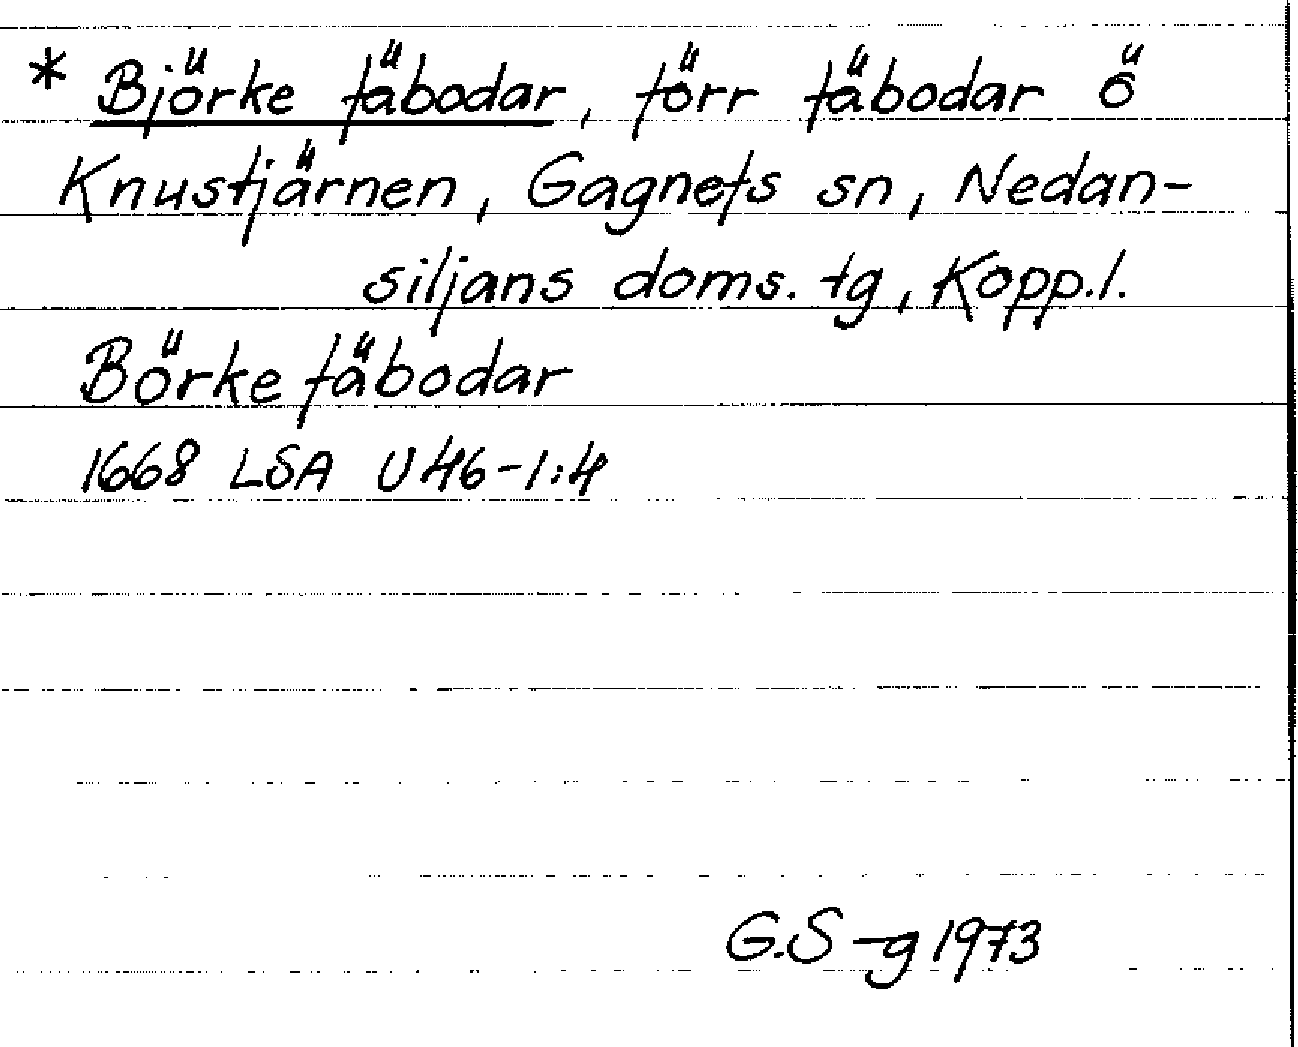 * Björke fäbodar, förr fäbodar ö
Knustjärnen, Gagnefs sn, Nedan-
siljans doms. tg, Kopp.l.
Börke fäbodar
1668 LSA U46-1:4
G.S-g 1973